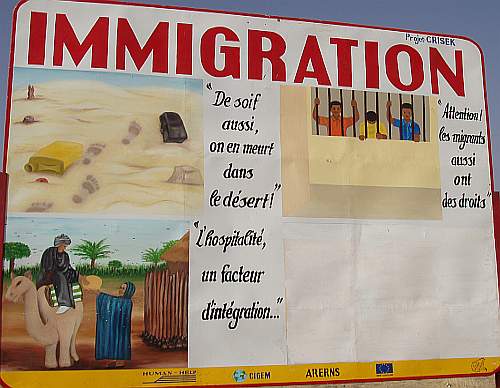 Projet CRISEK
IMMIGRATION
"De soif
aussi,
on en meurt
dans
le désert!"
"Attention!
les migrants
aussi
ont
des droits"
"L'hospitalité,
un facteur
d'intégration..."
HUMAN - HELP
CIGEM
ARERNS